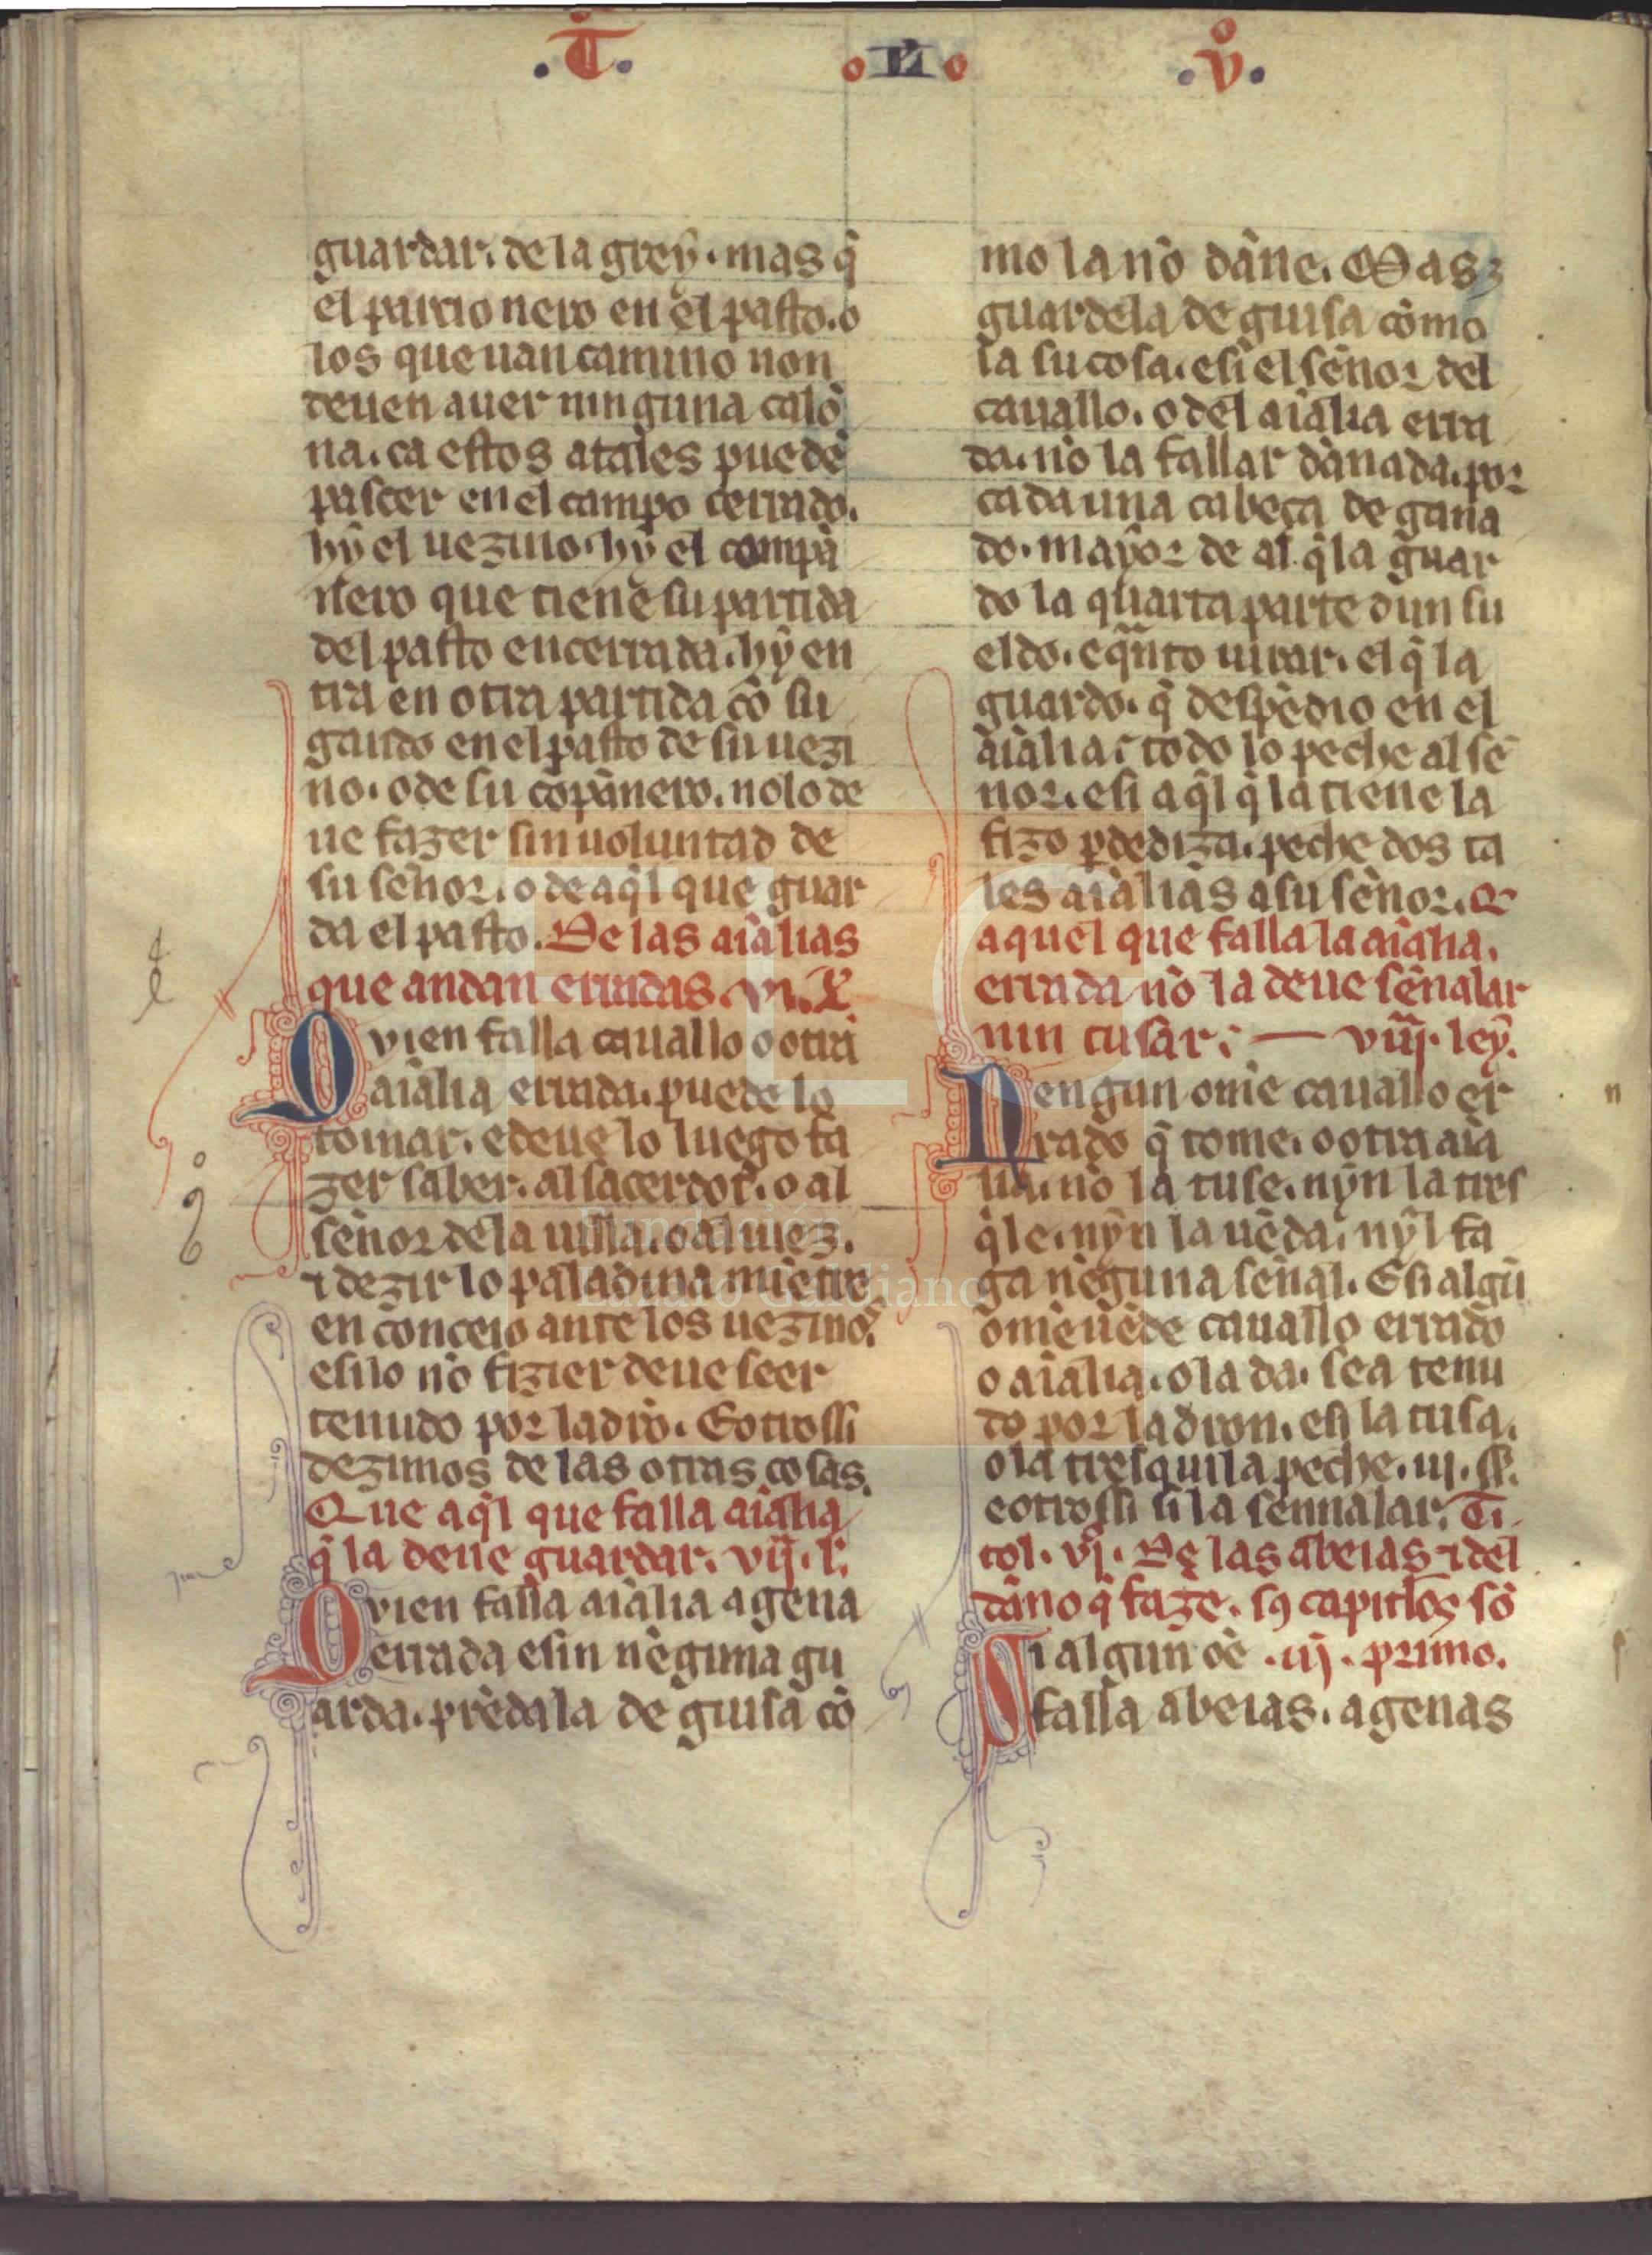 .T. o N o .vͦ.
guardar. de la grey. mas q̄
el parcionero en el pasto. o
los que uan camino non
deuen auer ninguna calo
na. ca estos atales puedē
pascer en el campo cerrado.
hy el uezino. hy el compa
nnero que tiene su partida
del pasto encerrada. hy en
tra en otra partida cō su
ganado en el pasto de su uezi
no. o de su cōpanero. nolo de
ue fazer sin uoluntad de
su señor. o de aq̄l que guar
da el pasto. De las aīalias
que andan erradas. vi. L
Qvien falla cauallo o otra
aīalia errada. puede lo
tomar. e deue lo luego fa
zer saber. al sacerdot. o al
señor de la uilla. o al iuez.
⁊ dezir lo paladina miētre
en conceio ante los uezinos.
e si lo nō fizier deue seer
tenudo por ladrō. E otrossi
dezimos de las otras cosas.
Que aq̄l que falla aīalia
q̄ la deue guardar. vij. l.
Qvien falla aīalia agena
errada e sin nēguna gu
arda. prēdala de guisa cō
mo la nō dāne. Mas
guardela de guisa cōmo
la su cosa. e si el sēnor del
cauallo. o del aīalia erra
da. nō la fallar dānada. por
cada una cabeça de gana
do. mayor de al. q̄ la guar
do la quarta parte dun su
eldo. e quāto iurar. el q̄ la
guardo. q̄ despēdio en el
aīalia. todo lo peche al sē
nor. e si aq̄l q̄ la tiene la
fizo ꝑdediza. peche dos ta
les aīalias a su sēnor. Q
aquel que falla la aīalia.
errada nō la deue sēnalar
nin tusar. — viij. ley.
Nengun omē cauallo er
rado q̄ tome. o otra aīa
lia. nō la tuse. nyn la tres
q̄le. nyn la uēda. nyl fa
ga nēguna sēnal. E si algū
omē uēde cauallo errado
o aīalia. o la da. sea tenu
do por ladron. e si la tusa.
o la tresquila peche. iij. ss.
e otrossi si la sennalar. Ti
tol. vj. De las abeias ⁊ del
dāno q̄ fazē. sꝯ capitlos sō
Si algun oē .iij. primo.
falla abeias. agenas